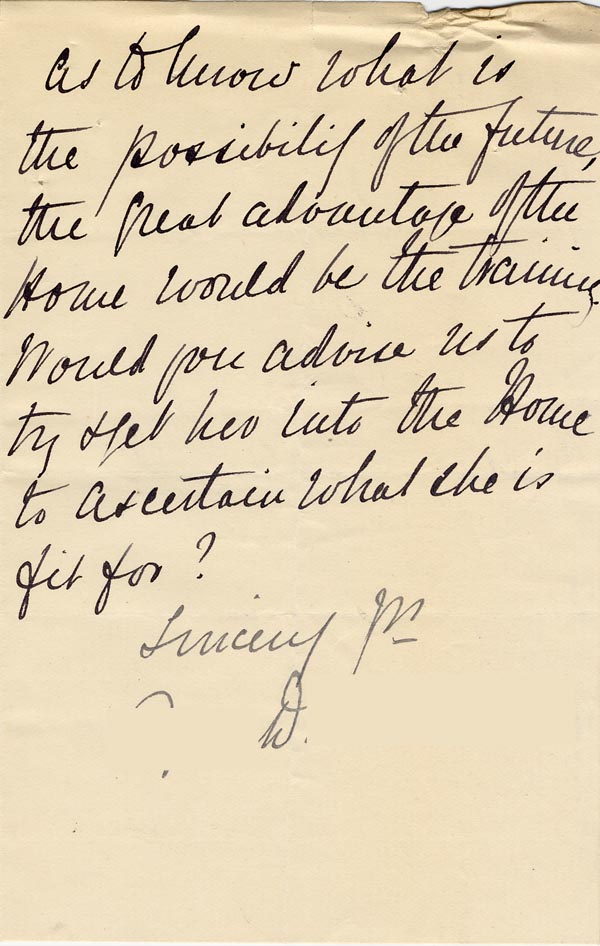 as to know what is
the possibility of the future,
the great advantage of the
Home would be the training.
Would you advise us to
try & get her into the Home
to ascertain what she is
fit for?
Sincerely Yrs
D.